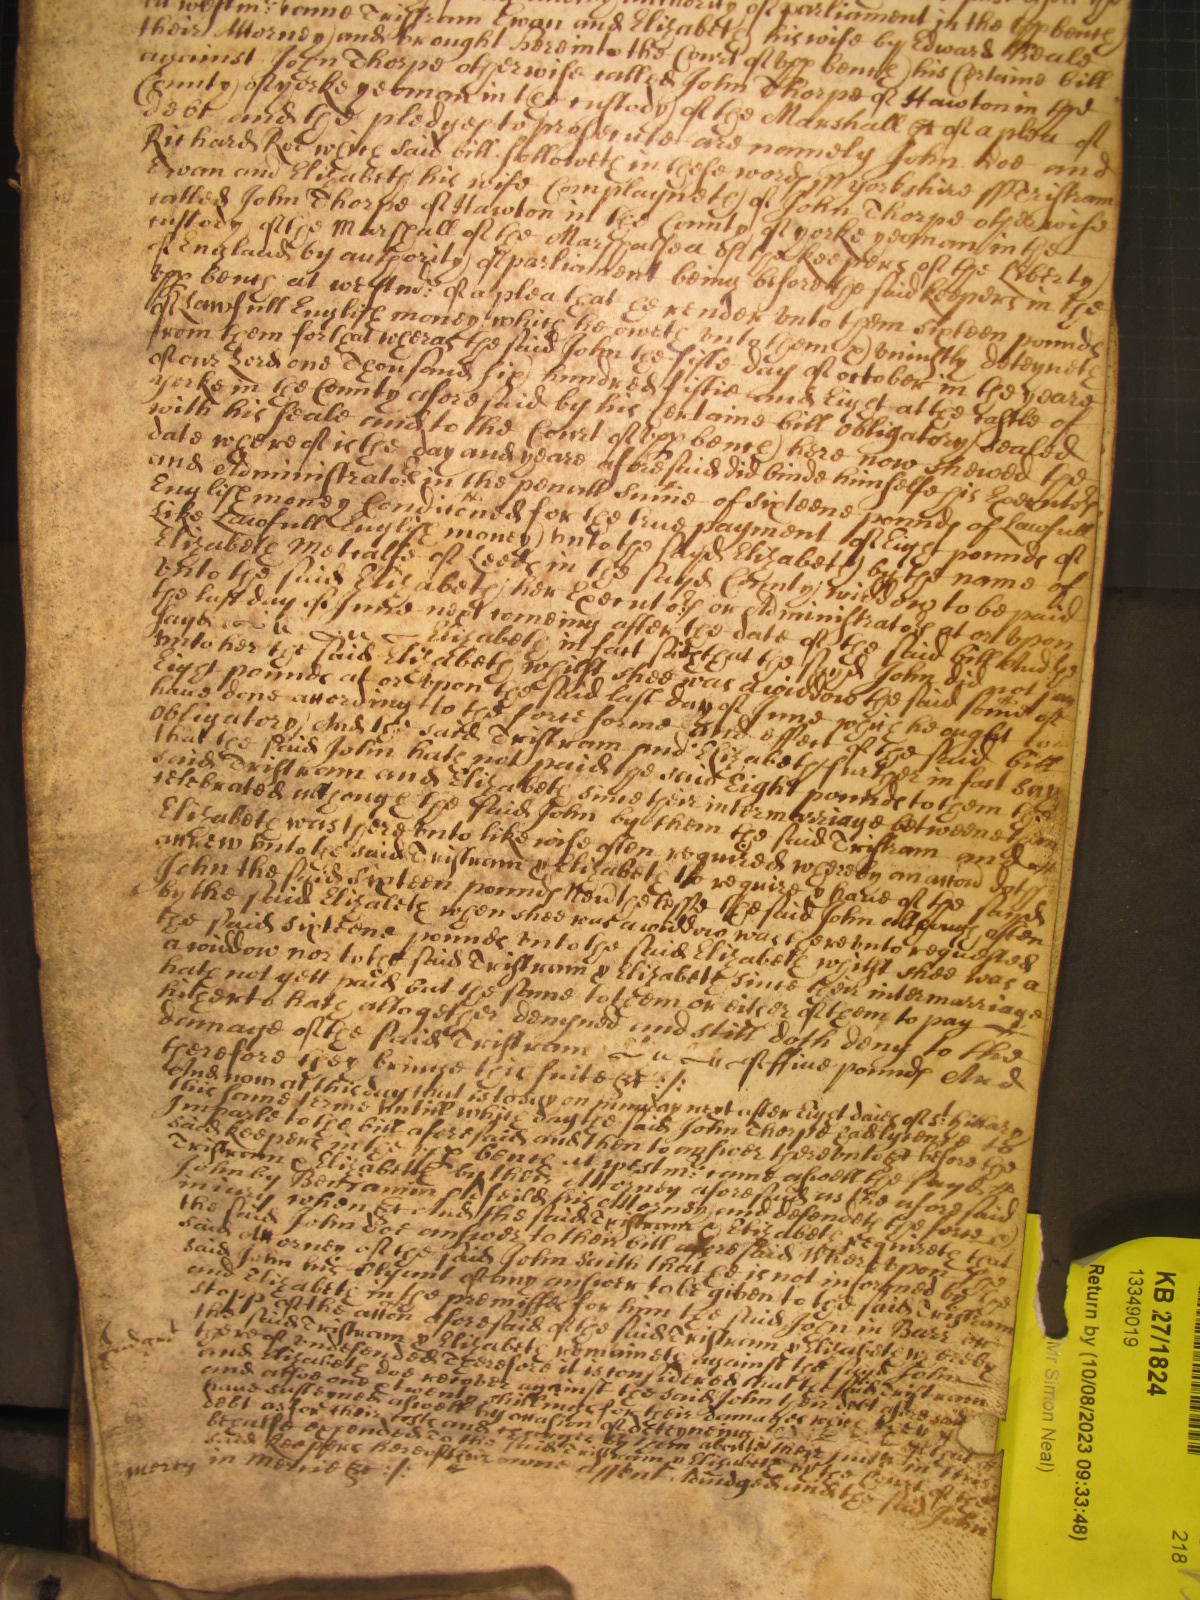 at westmr: came Tristram Ewan and Elizabeth his wife by Edward Heale
their Attorney and brought here into the Court of vpp bench his Certaine bill
against John Thorpe otherwise called John Thorpe of Hawton in the
County of yorke yeoman in the custody of the Marshall &c of a plea of
debt and the pledges to prosecute are namely John Doe and
Richard Roe which said bill followeth in these words ss yorkshire ss Tristram
Ewan and Elizabeth his wife Complayneth of John Thorpe otherwise
called John Thorpe of Hawton in the County of yorke yeoman in the
custody of the Marshall of the Marshalsea of the keepers of the Liberty
of England by authority of parliament being before the said keepers in the
vpp bench at westmr: of a plea that he render vnto them sixteen pounds
of Lawfull English money which he oweth vnto them & vniustly deteyneth
from them for that wheras the said John the fifte day of october in the yeare
of our Lord one Thousand six hundred fiftie and Eight at the Castle of
yorke in the County aforesaid by his certaine bill obligatory sealed
with his seale and to the Court of vpp bench here now shewed the
date whereof is the day and yeare aforesaid did binde himselfe his Executors
and Administrators in the penall sume of sixteene pounds of Lawfull
English money Conditioned for the true payment of Eight pounds of
Like Lawfull English money vnto the sayd Elizabeth by the name of
Elizabeth Metcalfe of Leeds in the sayd County widdow to be paid
vnto the said Elizabeth her Executors or Administrators at or vpon
the last day of June next comeing after the date of the said bill And the
sayd Elizabeth in fact saith that the sayd John did not pay
vnto her the said Elizabeth whilst shee was a widdow the said some of
Eight pounds at or vpon the said last day of June which he ought to
have done according to the force forme and effect of the said bill
obligatory And the said Tristram and Elizabeth further in fact say
that the said John hath not paid the said Eight pounds to them the
said Tristram and Elizabeth since their intermarriage betweene them
celebrated although the said John by them the said Tristram and
Elizabeth was therevnto likewise often required whereby an accon doth
accrew vnto the said Tristram & Elizabeth to require & have of the sayd
John the said sixteen pounds Neverthelesse the said John although often
by the said Elizabeth when shee was a widdow was therevnto requested
the said sixteene pounds vnto the said Elizabeth whilst shee was a
a widdow nor to the said Tristram & Elizabeth since their intermarriage
hath not yett paid but the same to them or either of them to pay
hitherto hath altogether denyed and still doth deny to the
damage of the said Tristram of ffive pounds And
therefore they bringe this suite &c :/:
And now at this day that is to say on munday next after Eight daies of st: hillary
this same terme vntill which day the said John Thorpe had lycence to
Imparle to the bill aforesaid and then to answer therevnto &c before the
said keepers in the vpp bench at westmr: came aswell the sayd
Tristram & Elizabeth by their Attorney aforesaid as the aforesaid
John by Beniamin his Attorney and defendeth the force &
iniury when &c And the said Tristram & Elizabeth requireth that
the said John doe answer to their bill aforesaid Wherevpon the
said Attorney of the said John saith that he is not informed by the
said John his Clyent of any answer to be given to the said Tristram
and Elizabeth in the premisses for him the said John in Barr or
stopp of the action aforesaid of the said Tristram & Elizabeth whereby
the said Tristram & Elizabeth remaineth against the said John
thereof vndefended Therefore it is considered that the said Tristram
and Elizabeth doe recover against the said John their debt aforesaid
and alsoe one & twenty shillings for their damages which they
have susteyned aswell by occasion of deteyneing of that
debt as for their costs and charges by them about their suite in this
behalfe expended to the said Tristram & Elizabeth by the Court of the
said keepers here of their owne assent Adiudged and the said John
mercy in mercie &c :/:
KB 27/1824
13349019
Return by (10/08/2023 09:33:48)
Mr Simon Neal)
218